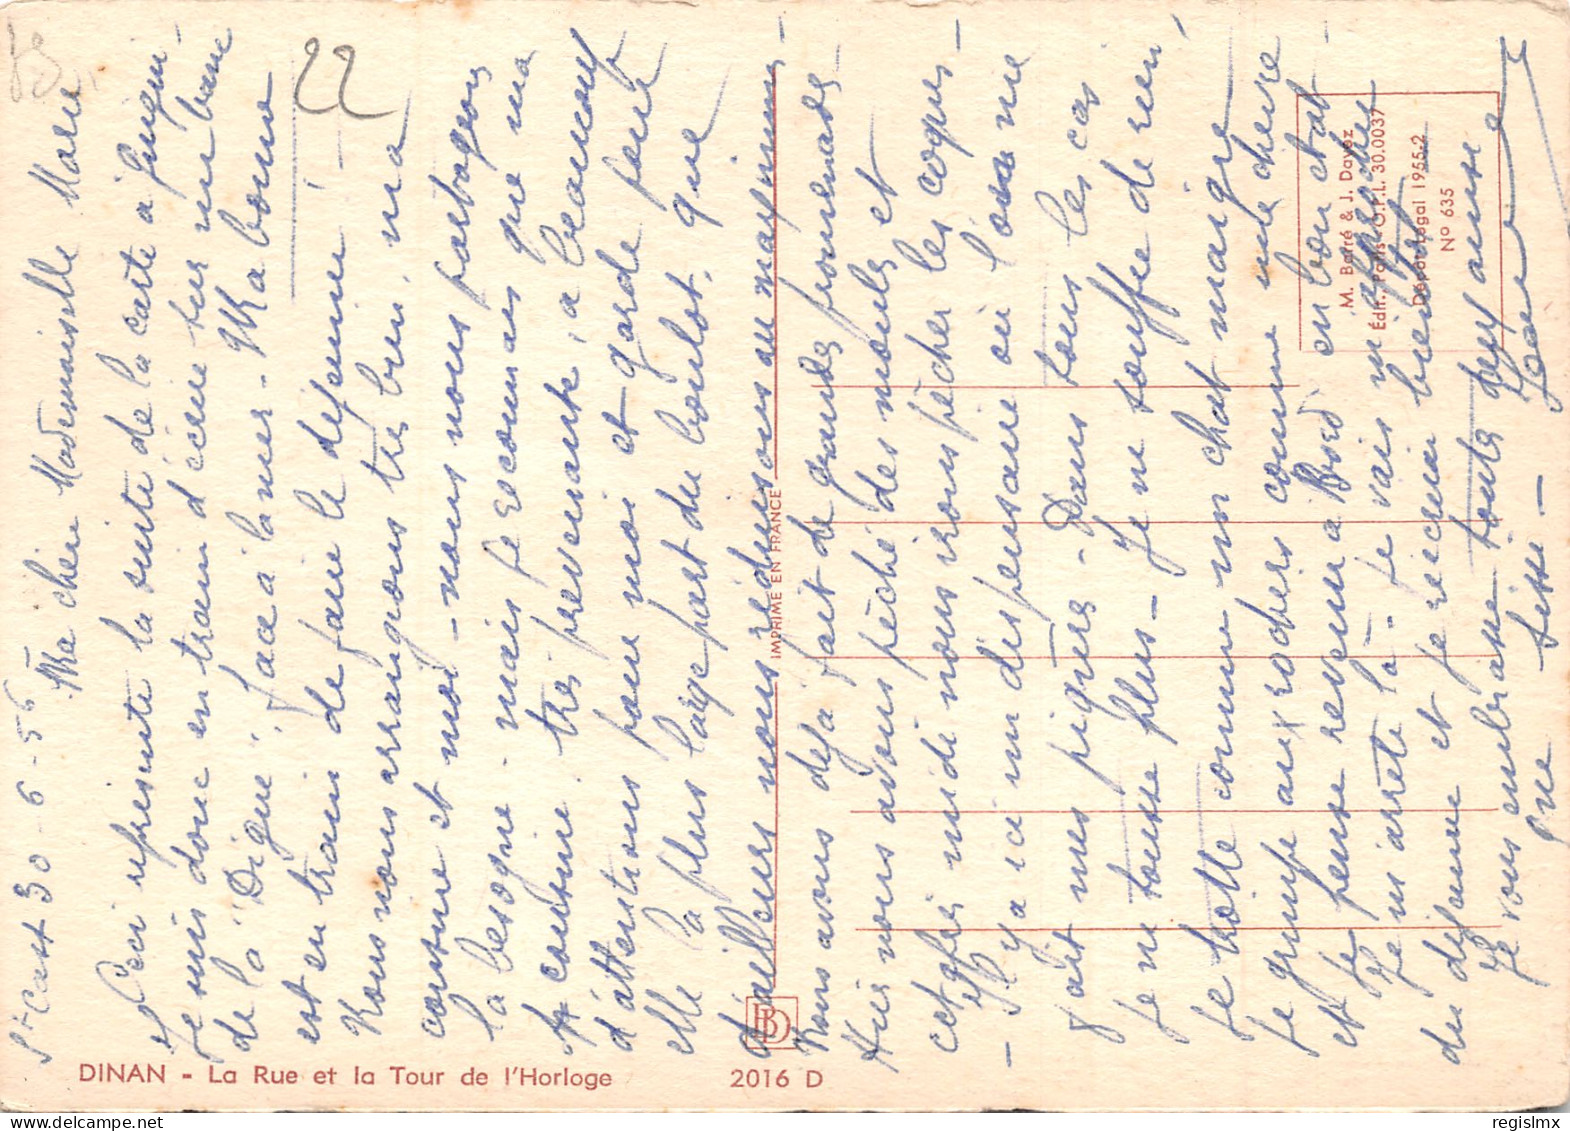 St Cast 30-6-56
Ma chère Mademoiselle Marie
Ceci représente la suite de la carte à
Je suis donc en train d'écrire sur un banc
de la "Digue", face à la mer - Ma bonne
est en train de faire le déjeuner -
Nous nous arrangeons très bien, ma
cousine et moi - nous nous partageons
la besogne - mais je reconnais que ma
cousine, très prévenante, a beaucoup
d'attentions pour moi et garde pour
elle la plus large part du boulot, que
d'ailleurs nous réduisons au maximum -
Nous avons déjà fait de grandes promenades -
Hier nous avons pêché des moules et
cet après midi nous irons pêcher les coques -
- Il y a ici un dispensaire où l'on me
fait mes piqûres - Dans tous les cas
je ne tousse plus - Je ne souffre de rien,
Je trotte comme un chat maigre
Je grimpe aux rochers comme une chèvre
et je pense revenir à Bord en bon état -
Je m'arrête là - je vais m'approcher
du déjeuner et je récrirai bientôt
Je vous embrasse toutes deux ainsi
que Sissi -
22
IMPRIMÉ EN FRANCE
M. Barré & J. Dayez
Édit., Paris O.P.L. 30.0037
Dépôt légal 1955-2
N° 635
BD
DINAN - La Rue et la Tour de l'Horloge
2016 D
regislmx